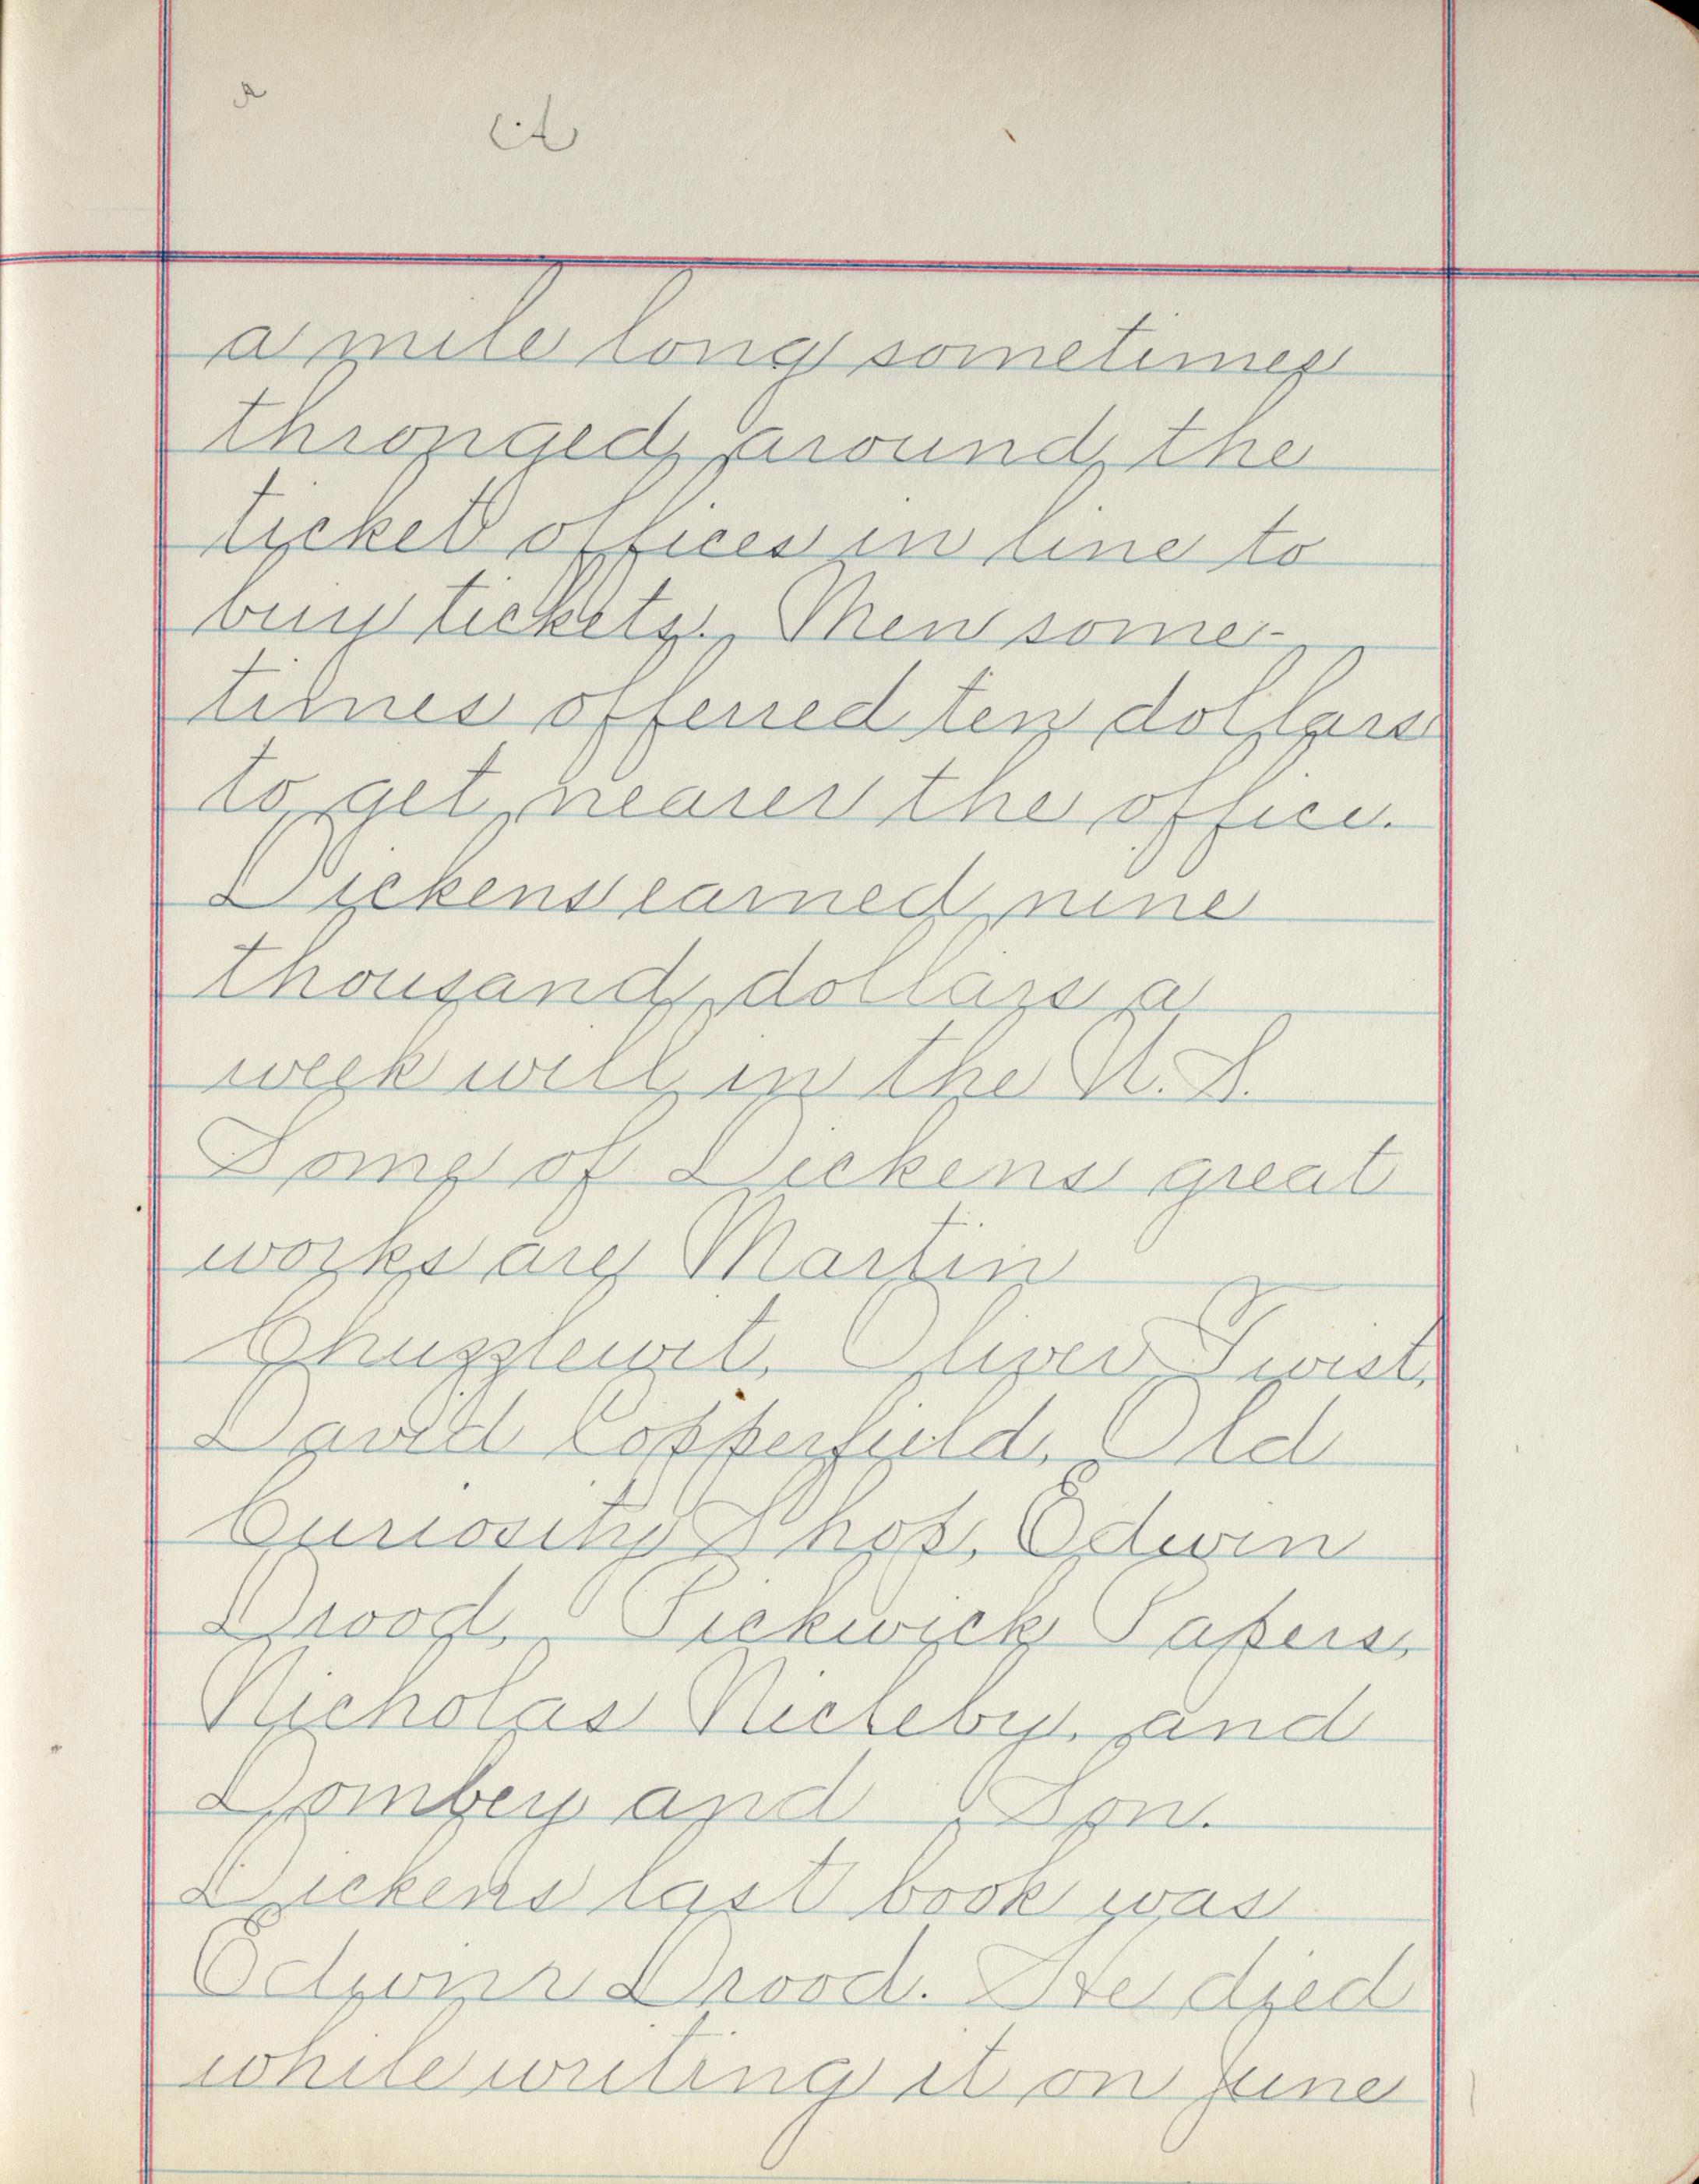 a mile long sometimes
thronged around the
ticket offices in line to
buy tickets. Men some-
times offerred ten dollars
to get nearer the office.
Dickens earned nine
thousand dollars a
week will in the U.S.
Some of Dickens great
works are Martin
Chuzzlewit, Oliver Twist,
David Copperfield, Old
Curiosity Shop, Edwin
Drood, Pickwick Papers,
Nicholas Nickleby, and
Dombey and Son.
Dickens last book was
Edwin Drood. He died
while writing it on June